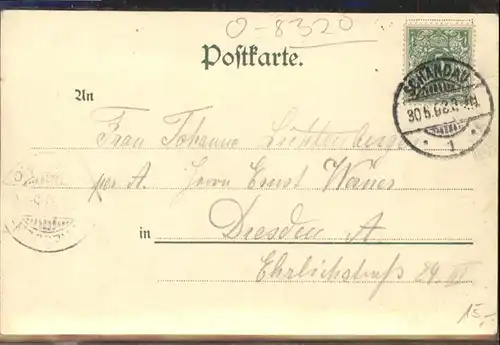 O-8320
Postkarte.
SCHANDAU
30 5 98
1
An
Frau Johanna Lichtenberger
per A. Herrn Ernst
in Dresden A.
Ehrlichstraß 24 III
15,-